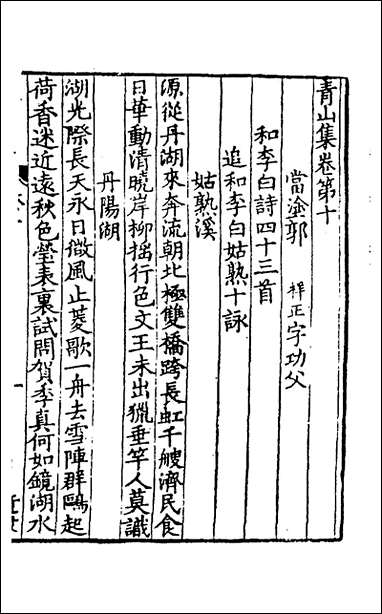 青山集卷第十
當塗郭 祥正 字功父
和李白詩四十三首
追和李白姑熟十詠
姑熟溪
源從丹湖來奔流朝北極雙橋跨長虹千艘濟民食
日華動清曉岸柳搖行色文王未出獵垂竿人莫識
丹陽湖
湖光際長天永日微風止菱歌一舟去雪陣群鷗起
荷香迷近遠秋色瑩表裏試問賀季真何如鏡湖水
一